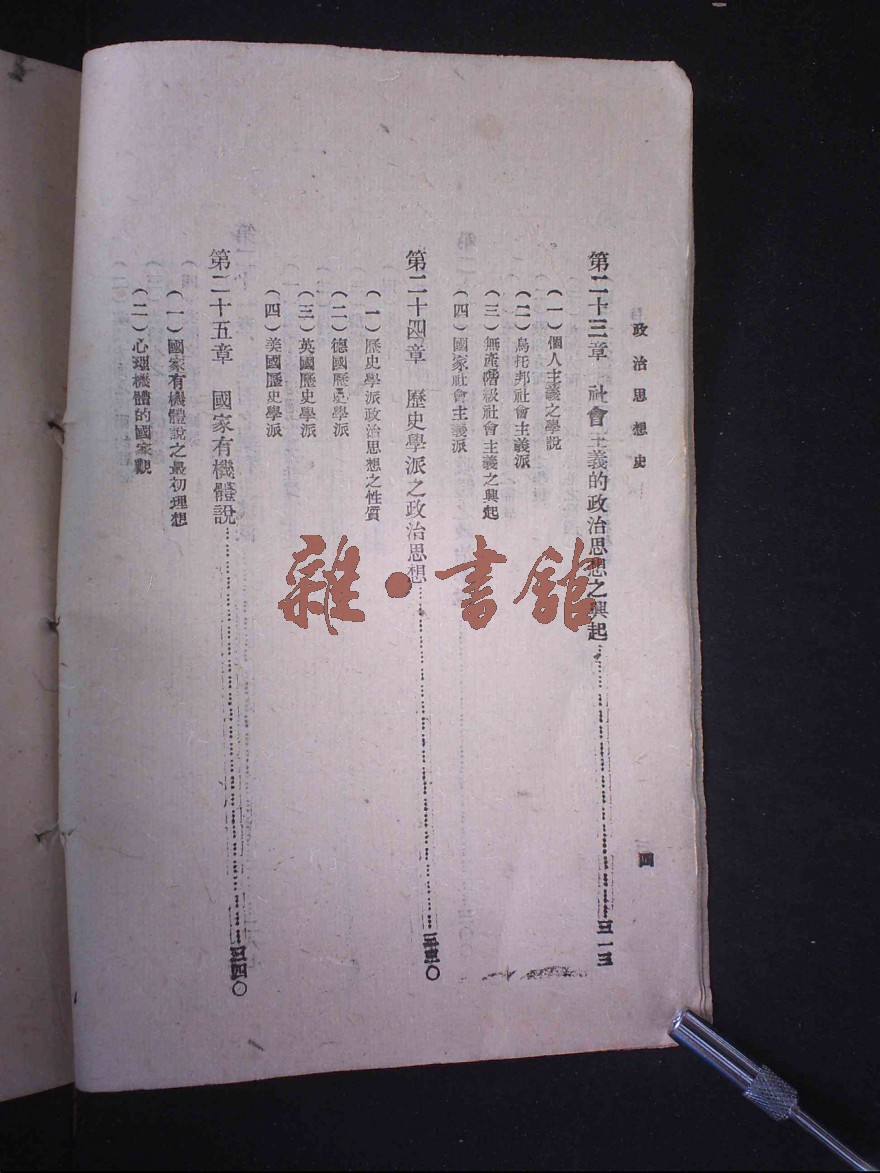 政治思想史
四
第二十三章 社會主義的政治思想之興起……三一三
(一)個人主義之學說
(二)烏托邦社會主義派
(三)無產階級社會主義之興起
(四)國家社會主義派
第二十四章 歷史學派之政治思想……三三〇
(一)歷史學派政治思想之性質
(二)德國歷史學派
(三)英國歷史學派
(四)美國歷史學派
第二十五章 國家有機體說……三四〇
(一)國家有機體說之最初理想
(二)心理機體的國家觀
雜·書館